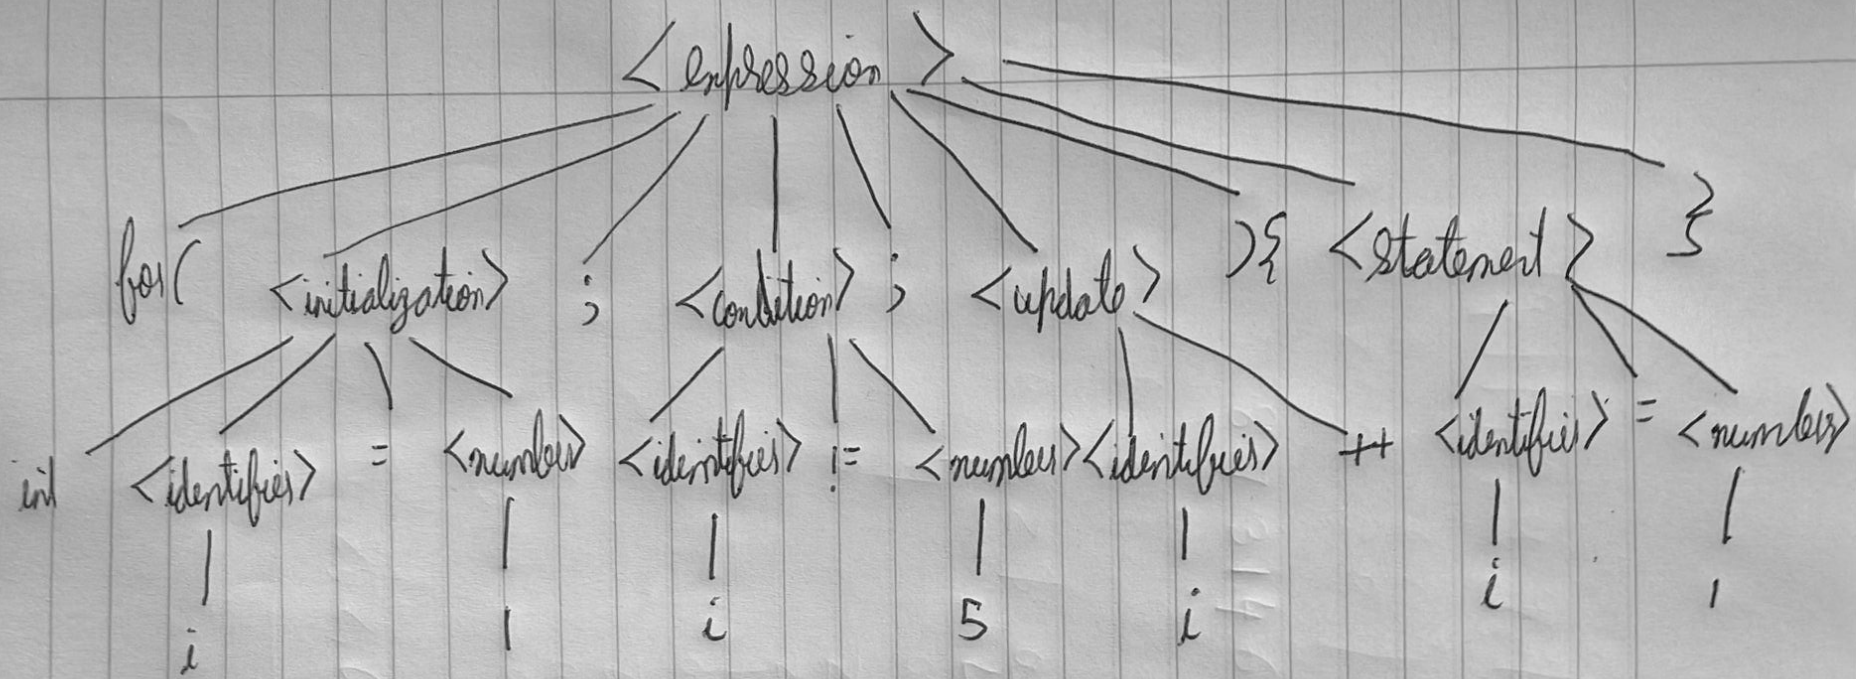 <expression>
for( <initialization> ; <condition> ; <update> ){ <statement> }
int <identifier> = <number> <identifier> != <number> <identifier> ++ <identifier> = <number>
i 1 i 5 i i 1